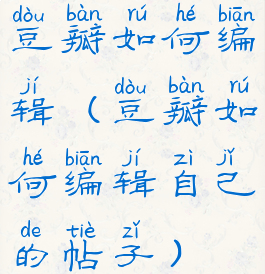 dòu bàn rú hé biān
豆瓣如何编
jí dòu bàn rú
辑(豆瓣如
hé biān jí zì jǐ
何编辑自己
de tiè zǐ
的帖子)